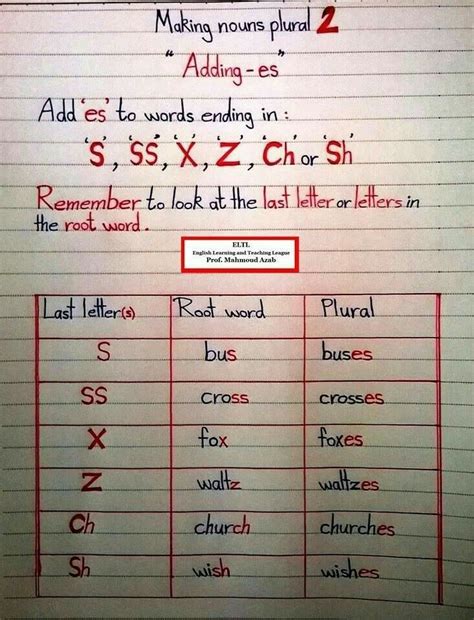 Making nouns plural 2
"Adding-es"
Add 'es' to words ending in :
'S', 'SS', 'X', 'Z', 'Ch' or 'Sh'
Remember to look at the last letter or letters in
the root word.
ELTL
English Learning and Teaching League
Prof. Mahmoud Azab
Last letter(s) Root word Plural
S bus buses
SS cross crosses
X fox foxes
Z waltz waltzes
Ch church churches
Sh wish wishes